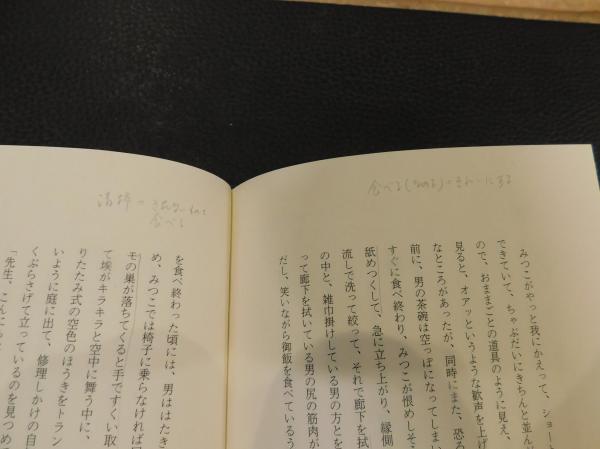 食べる(なめる)=きれいにする
みつこがやっと我にかえって、ショート
できていて、ちゃぶだいにきちんと並んが
ので、おままごとの道具のように見え、
見ると、オアッというような歓声を上げ
なところがあったが、同時にまた、恐ろ
前に、男の茶碗は空っぽになってしまい
すぐに食べ終わり、みつこが恨めしそ
舐めつくして、急に立ち上がり、縁側
流しで洗って絞って、それで廊下を拭
の中と、雑巾掛けしている男の方とを
って廊下を拭いている男の尻の筋肉が
だし、笑いながら御飯を食べているう
清掃=
食べる
を食べ終わった頃には、男ははたき
め、みつこでは椅子に乗らなければ届
モの巣が落ちてくると手ですくい取
て埃がキラキラと空中に舞う中に、
りたたみ式の空色のほうきをトラン
いように庭に出て、修理しかけの自
くぶらさげて立っているのを見つめて
「先生、こんに